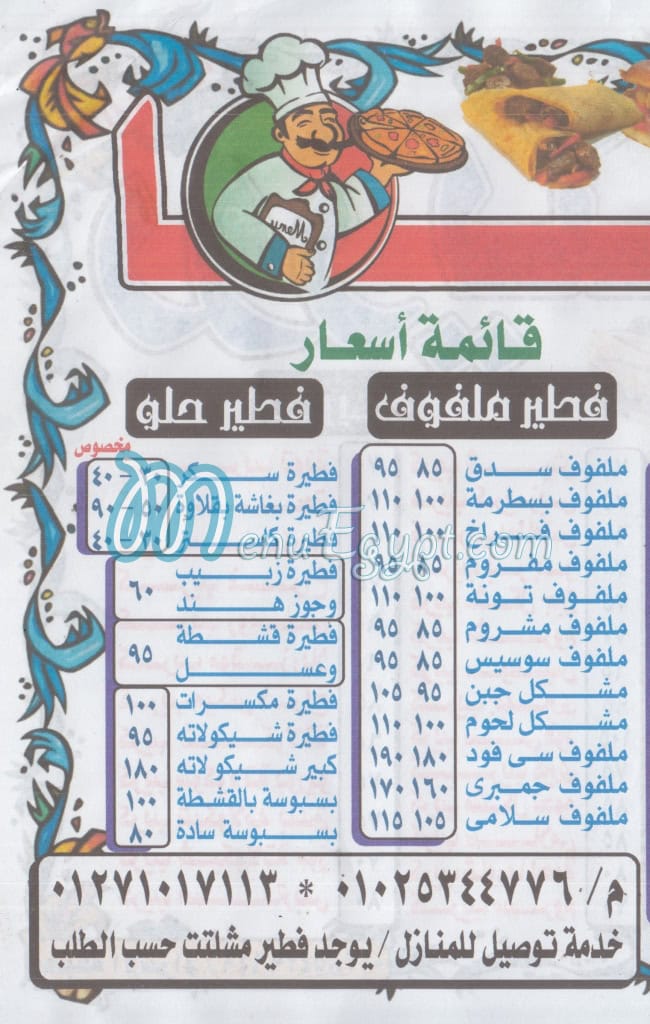 Menu
قائمة أسعار
فطير ملفوف
ملفوف سدق ٨٥ ٩٥
ملفوف بسطرمة ١٠٠ ١١٠
ملفوف فراخ ١٠٠ ١١٠
ملفوف مفروم ٨٥ ٩٥
ملفوف تونة ١٠٠ ١١٠
ملفوف مشروم ٨٥ ٩٥
ملفوف سوسيس ٨٥ ٩٥
مشكل جبن ٩٥ ١٠٥
مشكل لحوم ١٠٠ ١١٠
ملفوف سى فود ١٨٠ ١٩٠
ملفوف جمبرى ١٦٠ ١٧٠
ملفوف سلامى ١٠٥ ١١٥
فطير حلو
مخصوص
فطيرة ٤٠
فطيرة بغاشة بقلاوة ٥٠ – ٩٠
فطيرة ٤٠
فطيرة زبيب
وجوز هند ٦٠
فطيرة قشطة
وعسل ٩٥
فطيرة مكسرات ١٠٠
فطيرة شيكولاته ٩٥
كبير شيكولاته ١٨٠
بسبوسة بالقشطة ١٠٠
بسبوسة سادة ٨٠
MenuEgypt.com
م/ ٠١٠٢٥٣٤٤٧٧٦ * ٠١٢٧١٠١٧١١٣
خدمة توصيل للمنازل / يوجد فطير مشلتت حسب الطلب